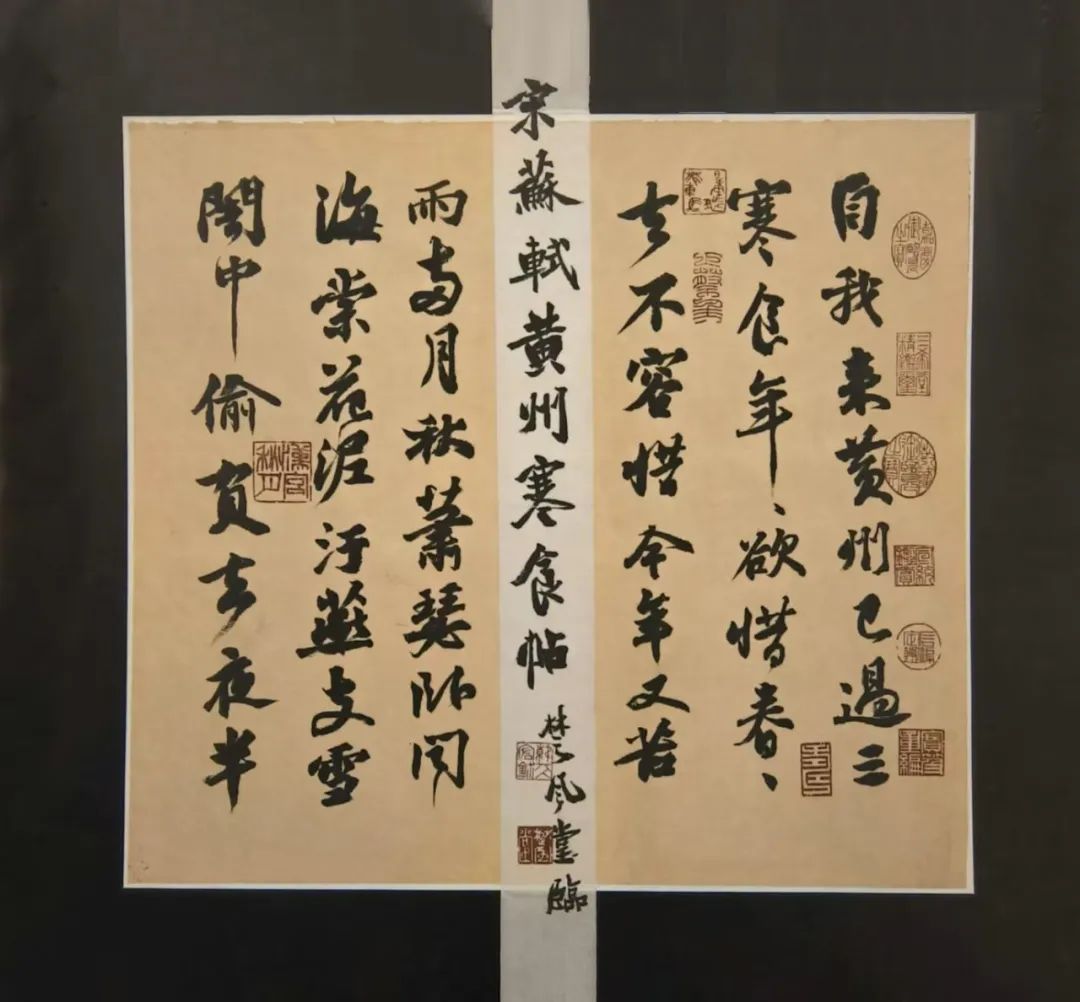 自我来黄州已過三
寒食年、欲惜春、
去不容惜今年又苦
宋蘇軾黄州寒食帖
楚风堂臨
雨两月秋蕭瑟卧闻
海棠花泥汙燕支雪
闇中偷負去夜半